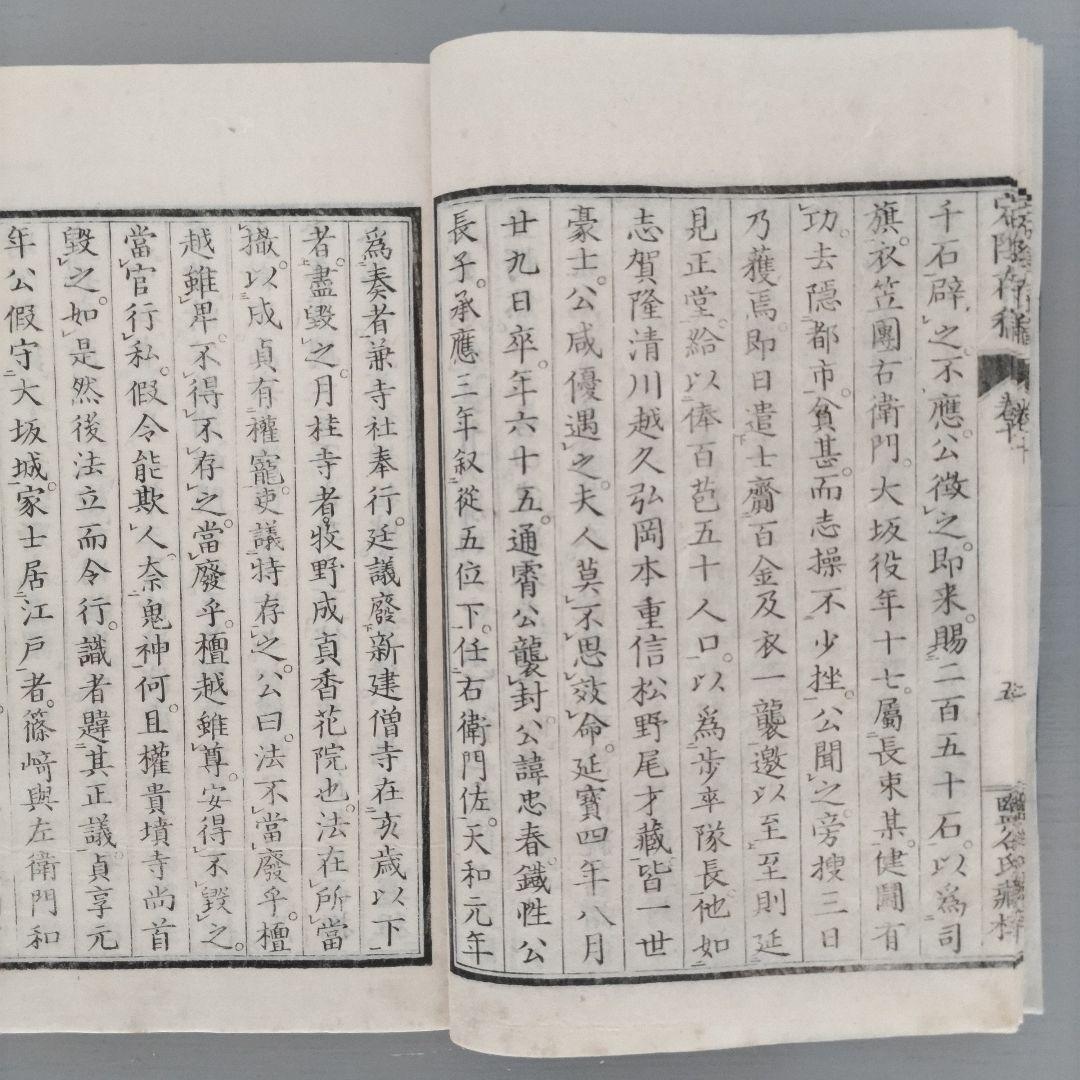 宕陰存稿 卷十 五 鹽谷氏藏梓
千石辟之不應。公徵之。即来。賜二百五十石。以爲司
旗。衣笠團右衛門。大坂役年十七。屬長束某。健鬪有
功。去隱都市。貧甚。而志操不少挫。公聞之。旁搜三日
乃獲焉。即日遣士齎百金及衣一襲邀以至。至則延
見正堂。給以俸百苞五十人口。以爲步卒隊長。他如
志賀隆清川越久弘岡本重信松野尾才藏。皆一世
豪士。公咸優遇之。夫人莫不思效命。延寶四年八月
廿九日卒。年六十五。通霄公襲封。公諱忠春。鐵性公
長子。承應三年叙從五位下。任右衛門佐。天和元年
爲奏者兼寺社奉行。廷議廢新建僧寺在亥歲以下
者。盡毀之。月桂寺者。牧野成真香花院也。法在所當
撤。以成貞有權寵。吏議特存之。公曰。法不當廢乎。檀
越雖卑。不得不存之。當廢乎。檀越雖尊。安得不毀之。
當官行私。假令能欺人。奈鬼神何。且權貴墳寺尚首
毀之。如是然後法立而令行。識者韙其正議。貞享元
年公假守大坂城。家士居江戸者。篠﨑與左衛門和